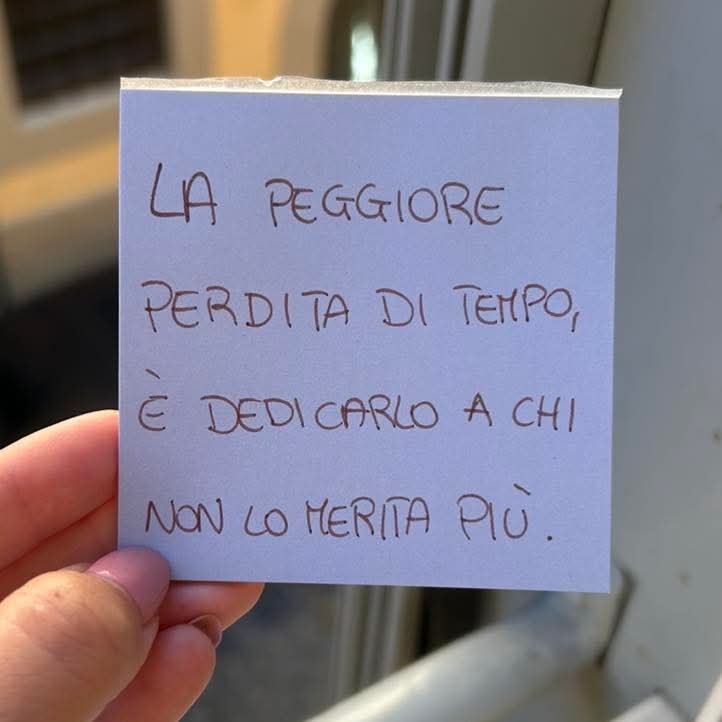 LA PEGGIORE
PERDITA DI TEMPO,
È DEDICARLO A CHI
NON LO MERITA PIÙ.